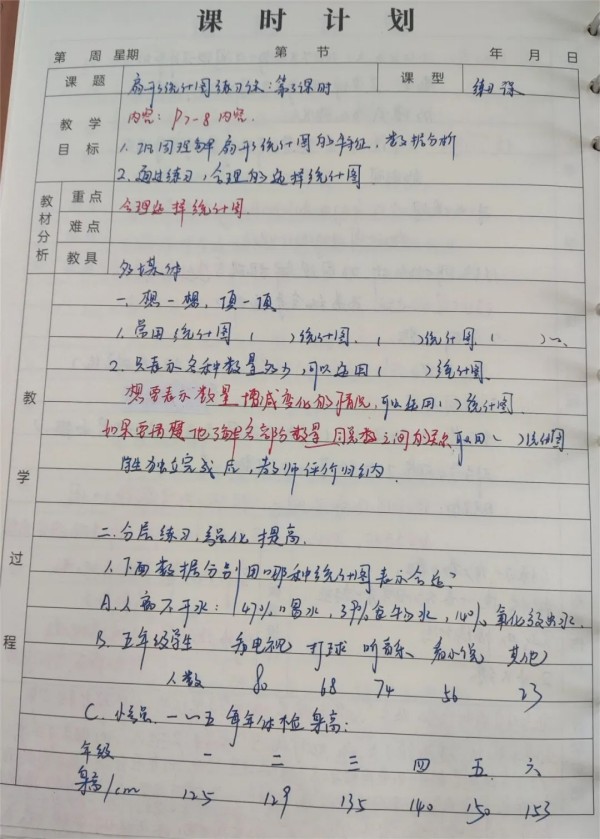 课时计划
第 周 星期 第 节 年 月 日
课题 扇形统计图练习课：第3课时 课型 练习课
教学目标 内容：P7-8内容.
1.巩固理解扇形统计图的特征，数据分析
2.通过练习，合理的选择统计图
教材分析 重点 合理选择统计图
难点
教具 多媒体
教学过程
一、想一想，填一填
1.常用统计图（ ）统计图.（ ）统计图（ ）~.
2.只表示各种数量多少，可以选用（ ）统计图、
想要表示数量增减变化的情况，可以选用（ ）统计图.
如果要清楚地了解各部分数量同总数之间的关系可以用（ ）统计图
学生独立完成后，教师评价归纳.
二.分层练习，强化提高.
1.下面数据分别用哪种统计图表示合适？
A.人离不开水：47%喝水，39%食物水，14%氧化释出水.
B.五年级学生 看电视 打球 听音乐 看小说 其他
人数 80 68 74 56 23
C. 一~五每年体检身高：
年级 一 二 三 四 五 六
身高/cm 125 129 135 140 150 153